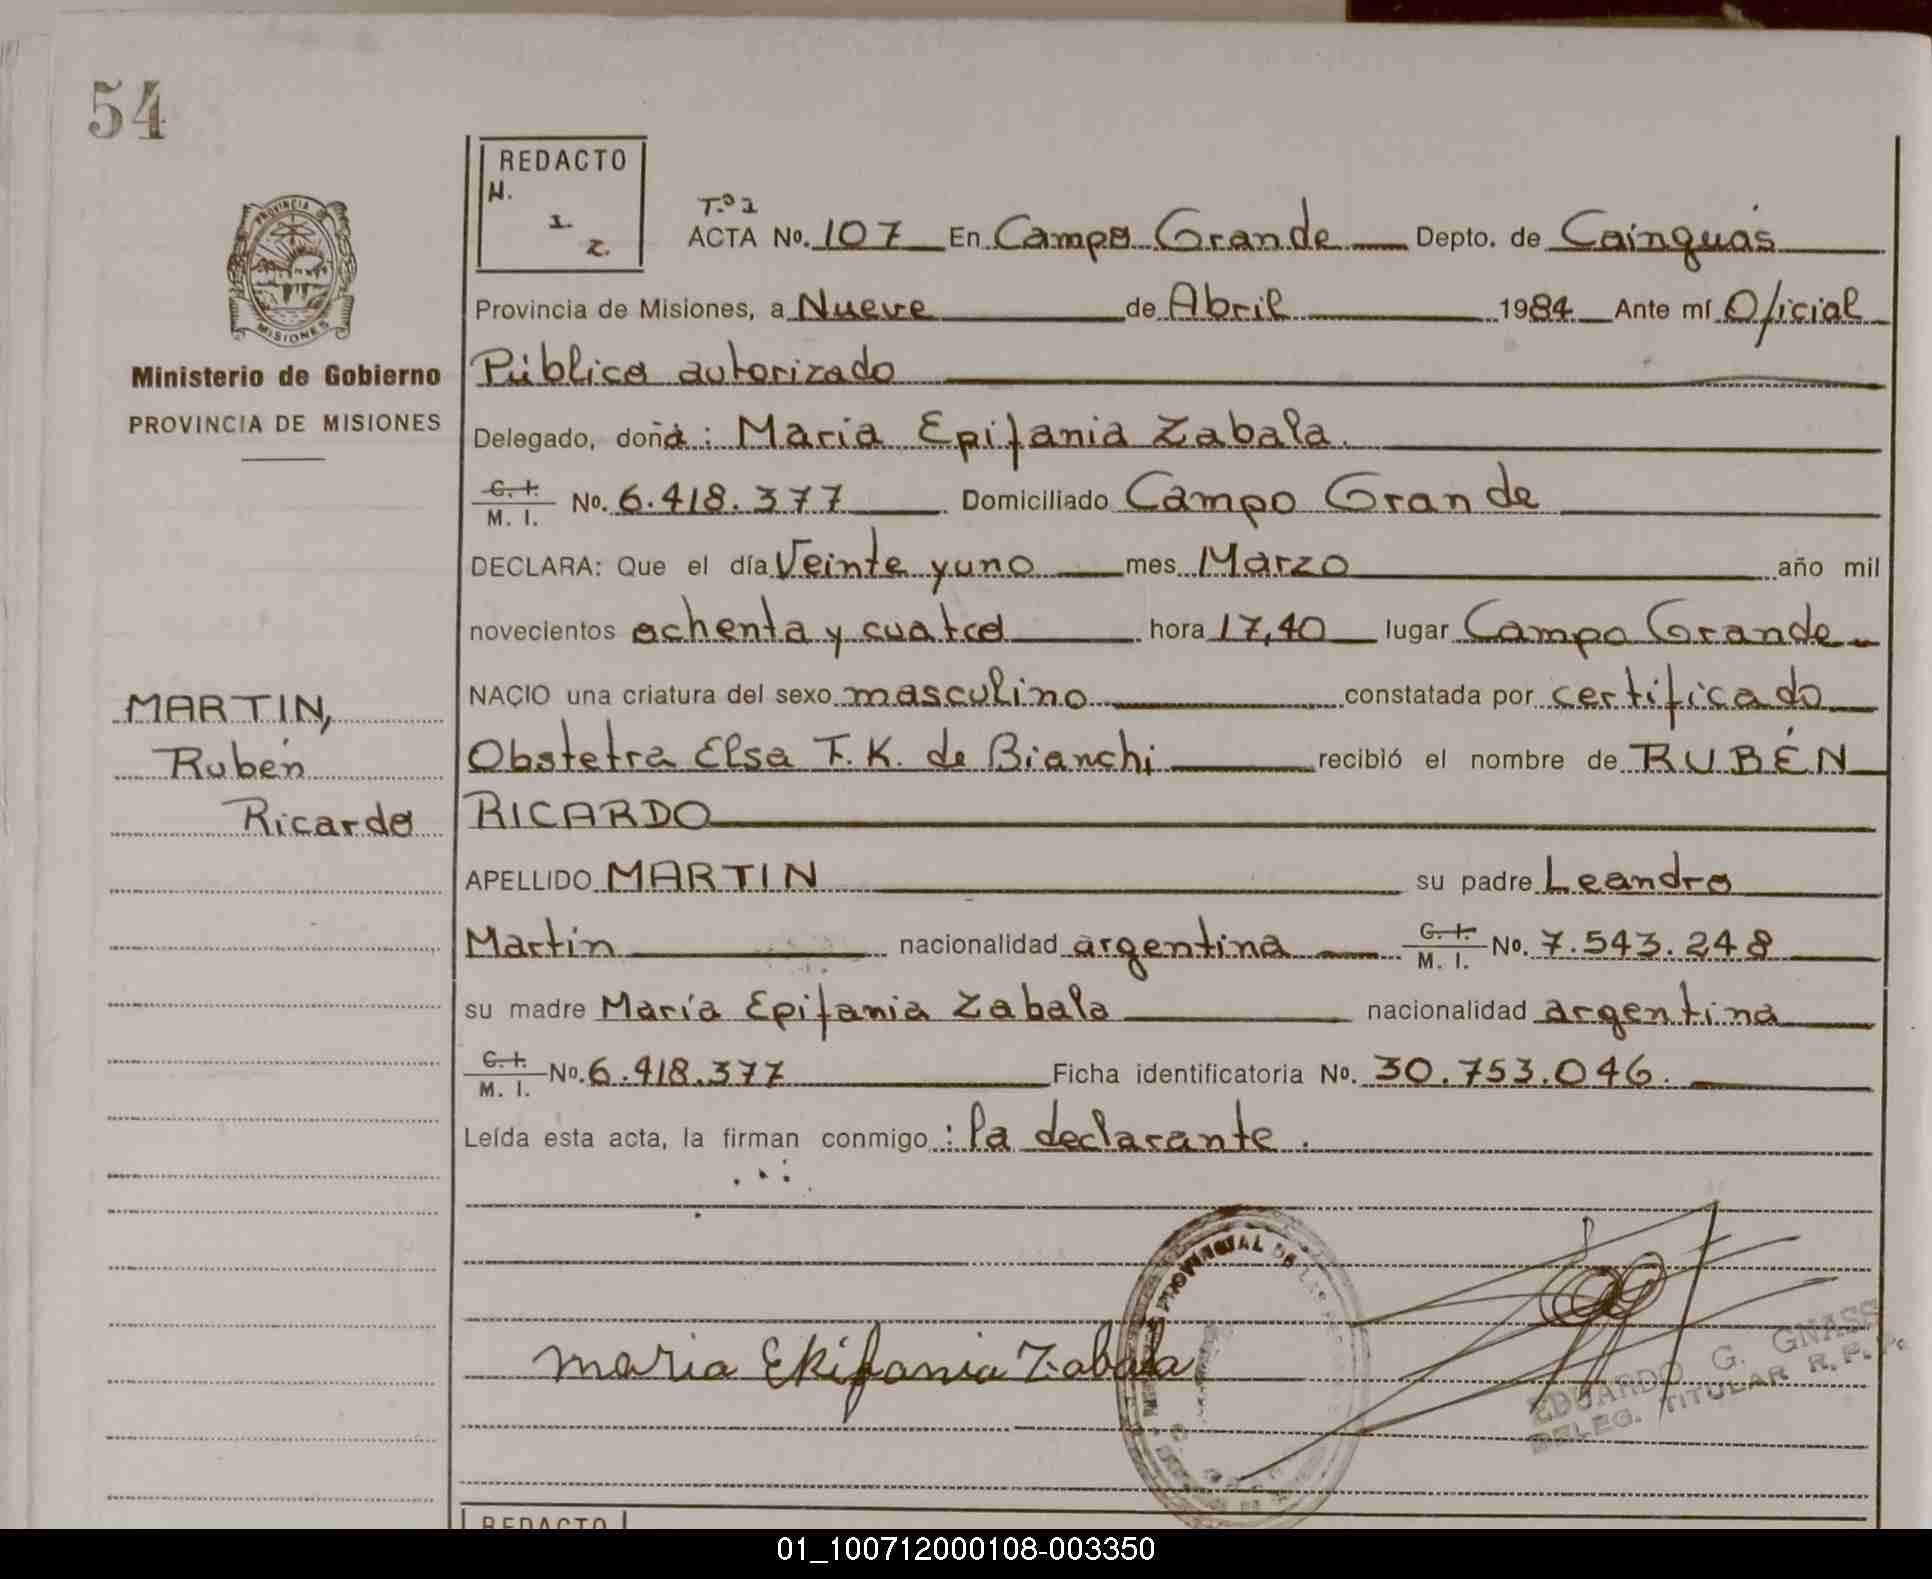 54
REDACTO
N.
1.
Z.
T.º 1
ACTA No. 107 En Campo Grande Depto. de Cainguás
Provincia de Misiones, a Nueve de Abril 1984 Ante mí Oficial
Público autorizado
Delegado, doña: Maria Epifania Zabala.
C. I. / M. I. No. 6.418.377 Domiciliado Campo Grande
DECLARA: Que el día Veinte y uno mes Marzo año mil
novecientos ochenta y cuatro hora 17,40 lugar Campo Grande
NACIO una criatura del sexo masculino constatada por certificado
Obstetra Elsa F. K. de Bianchi recibió el nombre de RUBÉN
RICARDO
APELLIDO MARTIN su padre Leandro
Martin nacionalidad argentina C. I. / M. I. No. 7.543.248
su madre María Epifania Zabala nacionalidad argentina
C. I. / M. I. No. 6.418.377 Ficha identificatoria No. 30.753.046.
Leída esta acta, la firman conmigo: la declarante.
PROVINCIA DE
MISIONES
Ministerio de Gobierno
PROVINCIA DE MISIONES
MARTIN,
Rubén
Ricardo
maria Ekifania Zabala
PROVINCIAL DE LAS
EDUARDO G. GNASS
DELEG. TITULAR R. P. P.
REDACTO
01_100712000108-003350